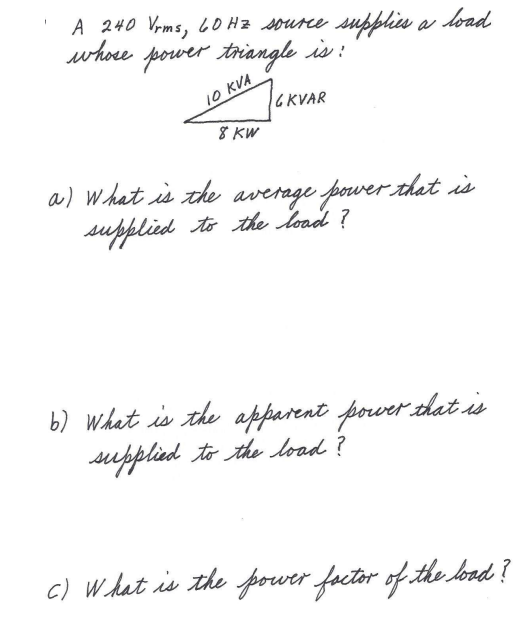 A 240 Vrms, 60 Hz source supplies a load
whose power triangle is:
10 KVA
6 KVAR
8 KW
a) What is the average power that is
supplied to the load?
b) What is the apparent power that is
supplied to the load?
c) What is the power factor of the load?